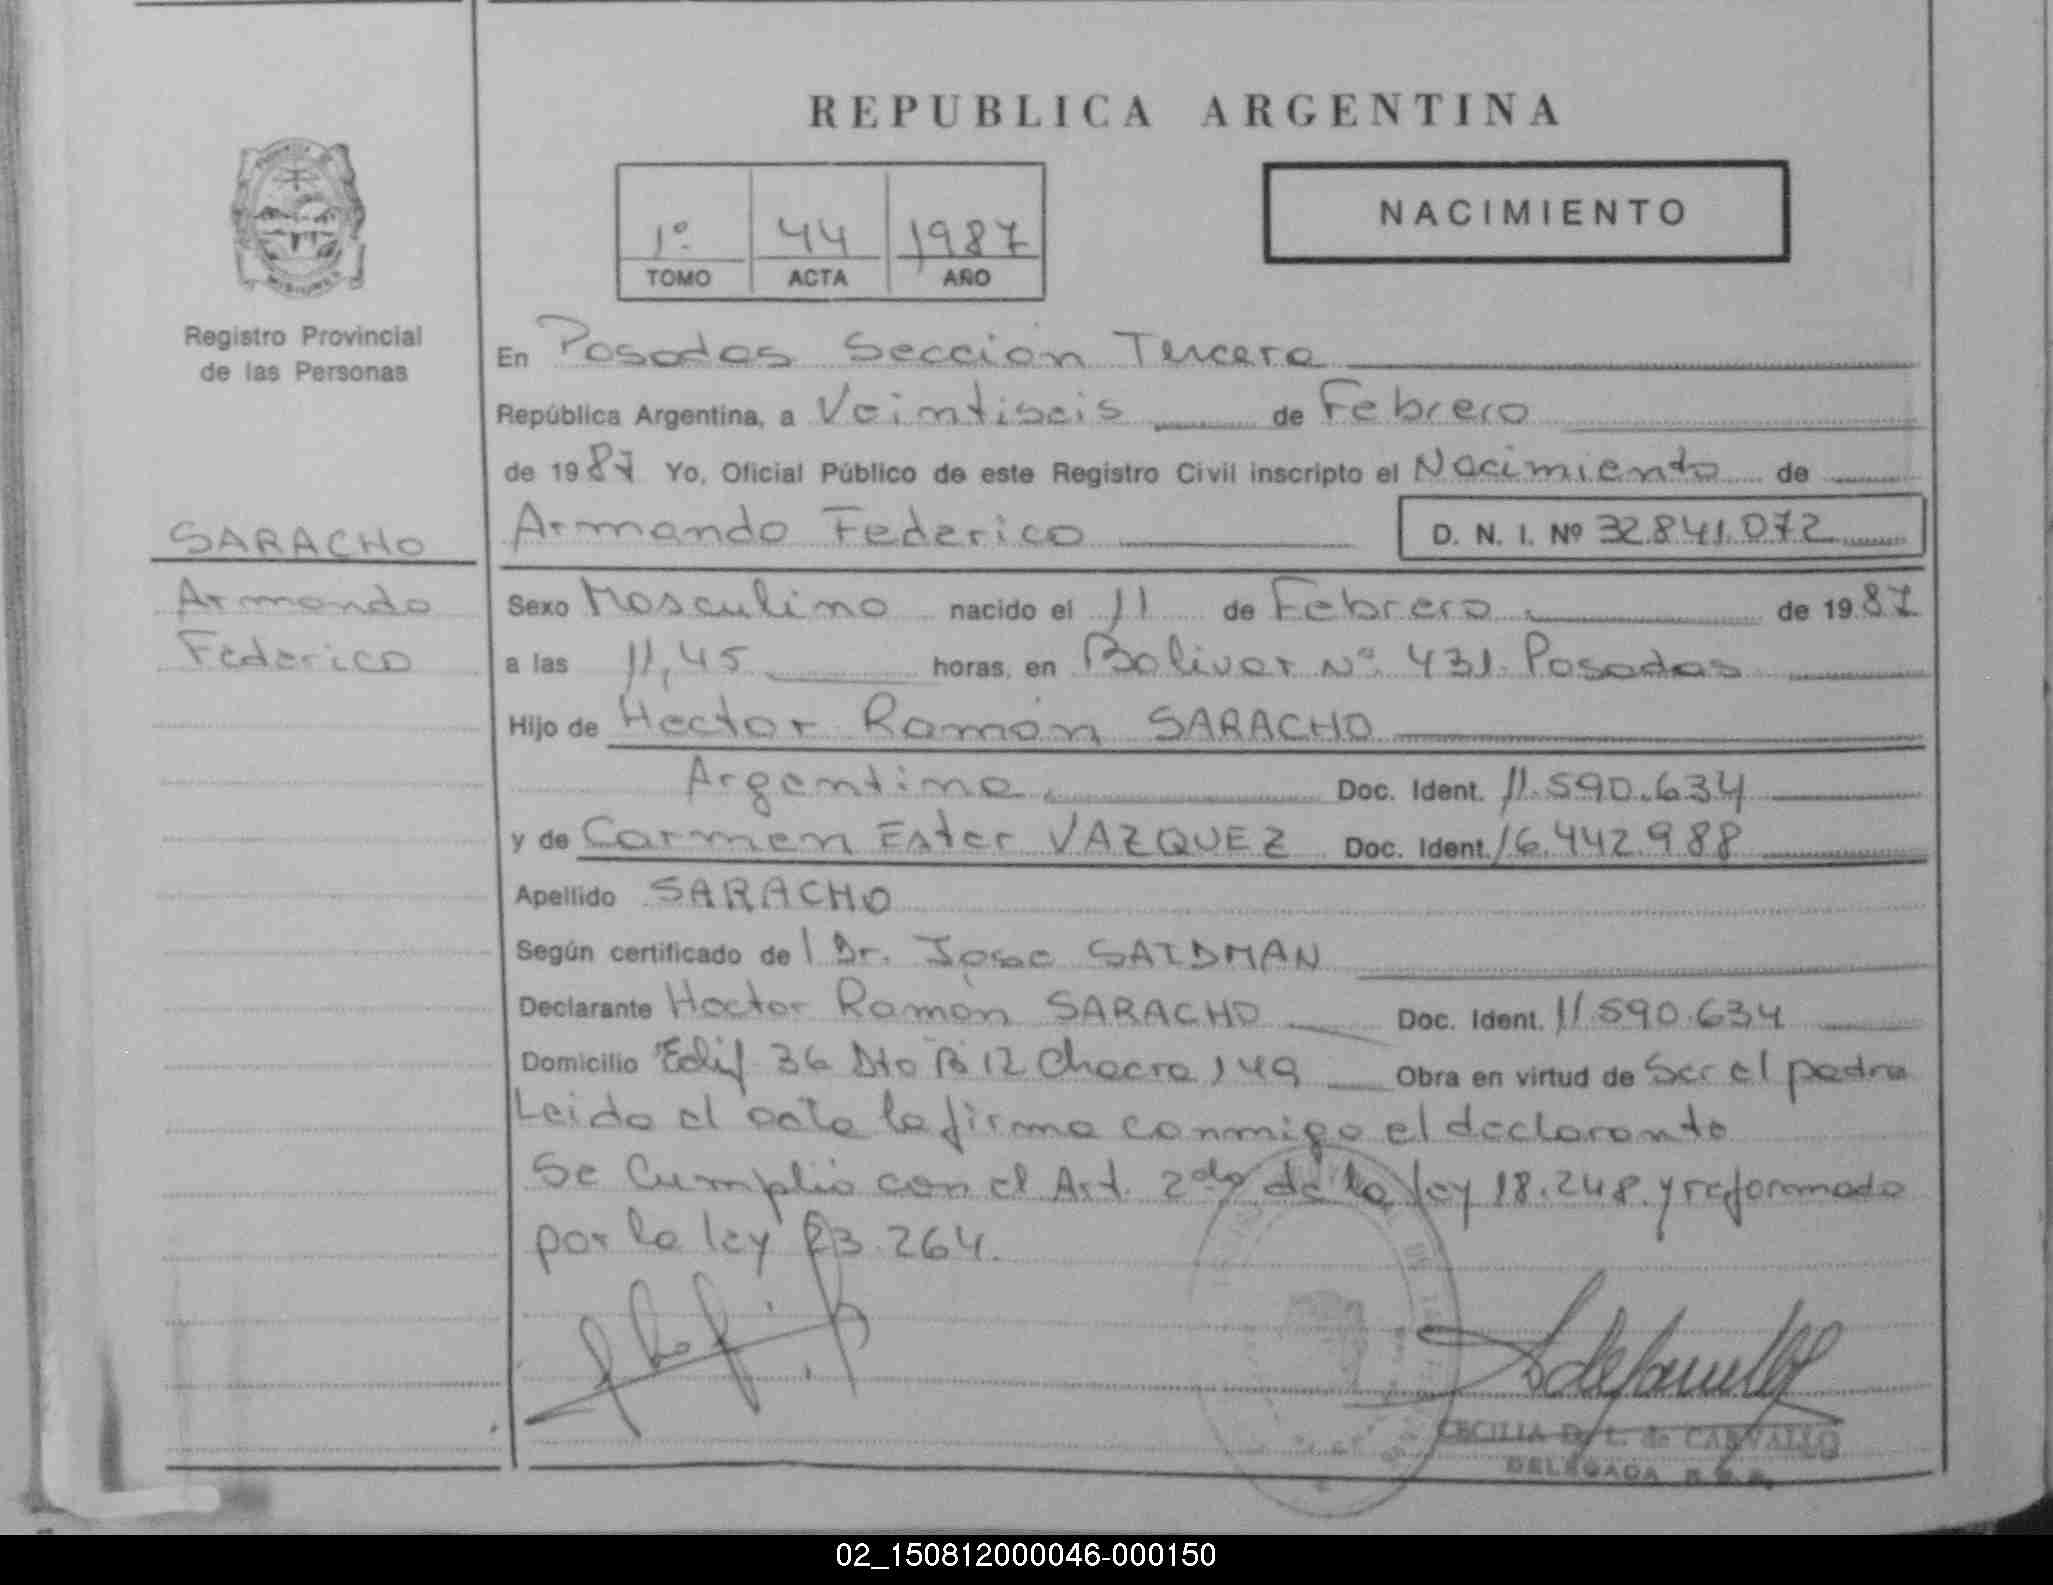 REPUBLICA ARGENTINA
NACIMIENTO
1º 44 1987
TOMO ACTA AÑO
Registro Provincial
de las Personas
En Posadas Sección Tercera
República Argentina, a Veintiseis de Febrero
de 1987 Yo, Oficial Público de este Registro Civil inscripto el Nacimiento de
SARACHO
Armando Federico D. N. I. Nº 32.841.072
Armando
Federico
Sexo Masculino nacido el 11 de Febrero de 1987
a las 11,45 horas, en Bolivar Nº 431. Posadas
Hijo de Hector Ramón SARACHO
Argentina Doc. Ident. 11.590.634
y de Carmen Ester VAZQUEZ Doc. Ident. 16.442.988
Apellido SARACHO
Según certificado de l Dr. Jose SAIDMAN
Declarante Hector Ramón SARACHO Doc. Ident. 11.590.634
Domicilio Edif 36 Dto B 12 Chacra 149 Obra en virtud de Ser el padre
Leida el acta la firma conmigo el declarante
Se Cumplio con el Art. 2do de la ley 18.248 y reformado
por la ley 23.264.
CECILIA D. L. de CARVALLO
DELEGADA
02_150812000046-000150